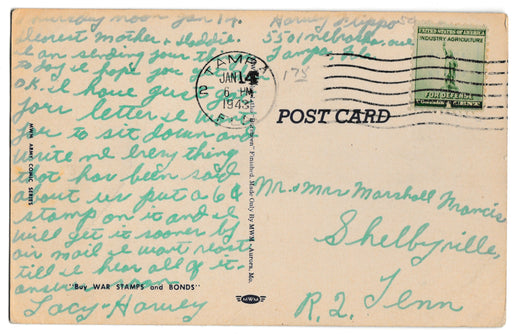 Thursday noon Jan 14.
Dearest Mother & Daddie.
I am sending your things
to day I hope you are
O.K. I have just got
your letter I want
you to sit down and
write me every thing
that has been said
about us put a 6¢
stamp on it and I
will get it sooner by
air mail I wont rest
till I hear all of it.
answer soon
Lacy - Harvey
Harvey Flippo
Tampa Fla
TAMPA
JAN 14
6 PM
1943
FLA.
2
175
UNITED STATES OF AMERICA
INDUSTRY AGRICULTURE
FOR DEFENSE
POST CARD
Mr & Mrs Marshall Francis
Shelbyville,
R. 2. Tenn
MWM ARMY COMIC SERIES
Finished. Made Only By MWM, Aurora, Mo.
"Buy WAR STAMPS and BONDS"
MWM